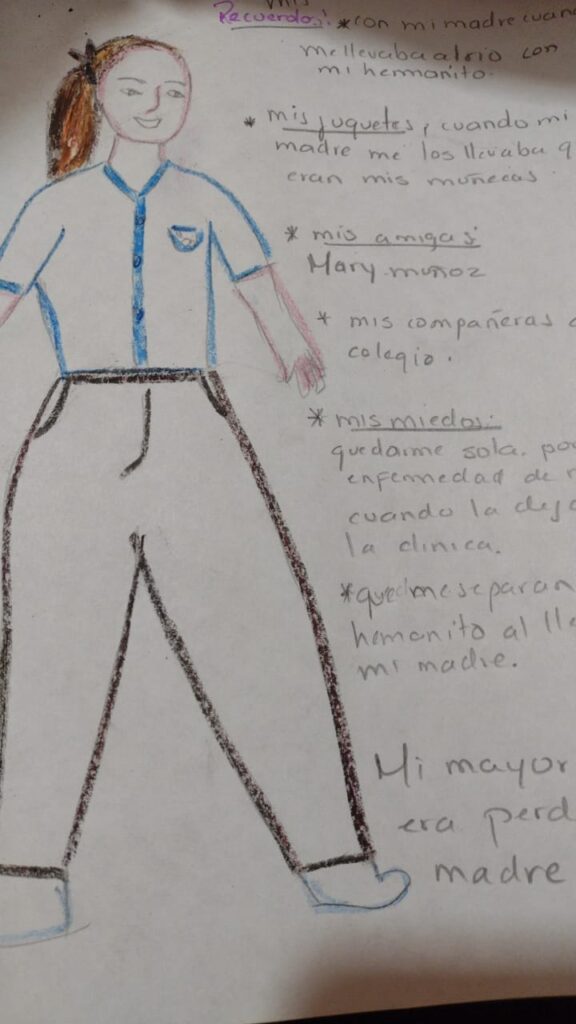 mis
Recuerdos: * con mi madre cuan
me llevaba al rio con
mi hermanito.
* mis juguetes, cuando mi
madre me los llevaba q
eran mis muñecas
* mis amigas:
Mary muñoz
* mis compañeras
colegio.
* mis miedos:
quedarme sola. por
enfermedad de
cuando la dej
la clinica.
* que me separan
hemanito al lle
mi madre.
Mi mayor
era perd
madre